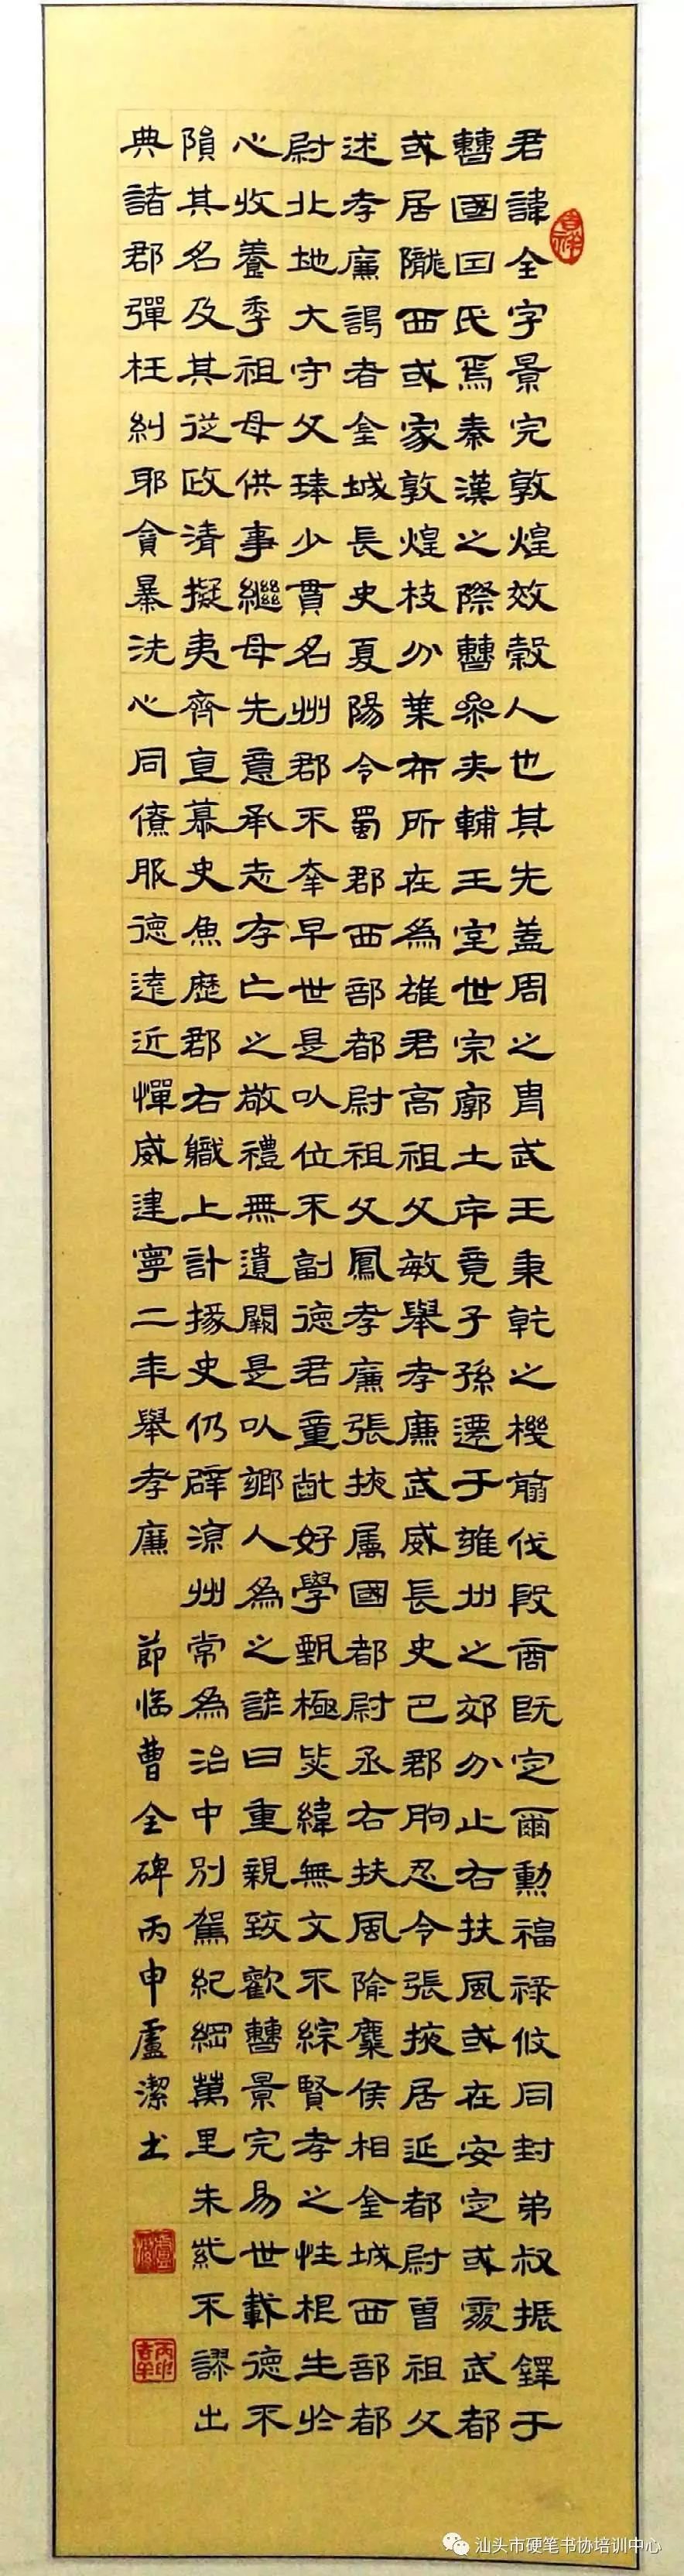 君諱全字景完敦煌效穀人也其先蓋周之胄武王秉乾之機翦伐殷商既定爾勳福祿攸同封弟叔振鐸于
曹國囯氏焉秦漢之際曹參夾輔王室世宗廓土斥竟子孫遷于雍州之郊分止右扶風或在安定或處武都
或居隴西或家敦煌枝分葉布所在為雄君高祖父敏舉孝廉武威長史巴郡朐忍令張掖居延都尉曾祖父
述孝廉謁者金城長史夏陽令蜀郡西部都尉祖父鳳孝廉張掖属國都尉丞右扶風隃麋侯相金城西部都
尉北地大守父琫少貫名州郡不幸早世是以位不副德君童齔好學甄極毖緯無文不綜賢孝之性根生於
心收養季祖母供事繼母先意承志存亡之敬禮無遺闕是以鄉人為之諺曰重親致歡曹景完易世載德不
隕其名及其從政清擬夷齊直慕史魚歷郡右職上計掾史仍辟涼州常為治中別駕紀綱萬里朱紫不謬出
典諸郡彈枉糾邪貪暴洗心同僚服德遠近憚威建寧二年舉孝廉 節临曹全碑丙申盧潔书
汕头市硬笔书协培训中心